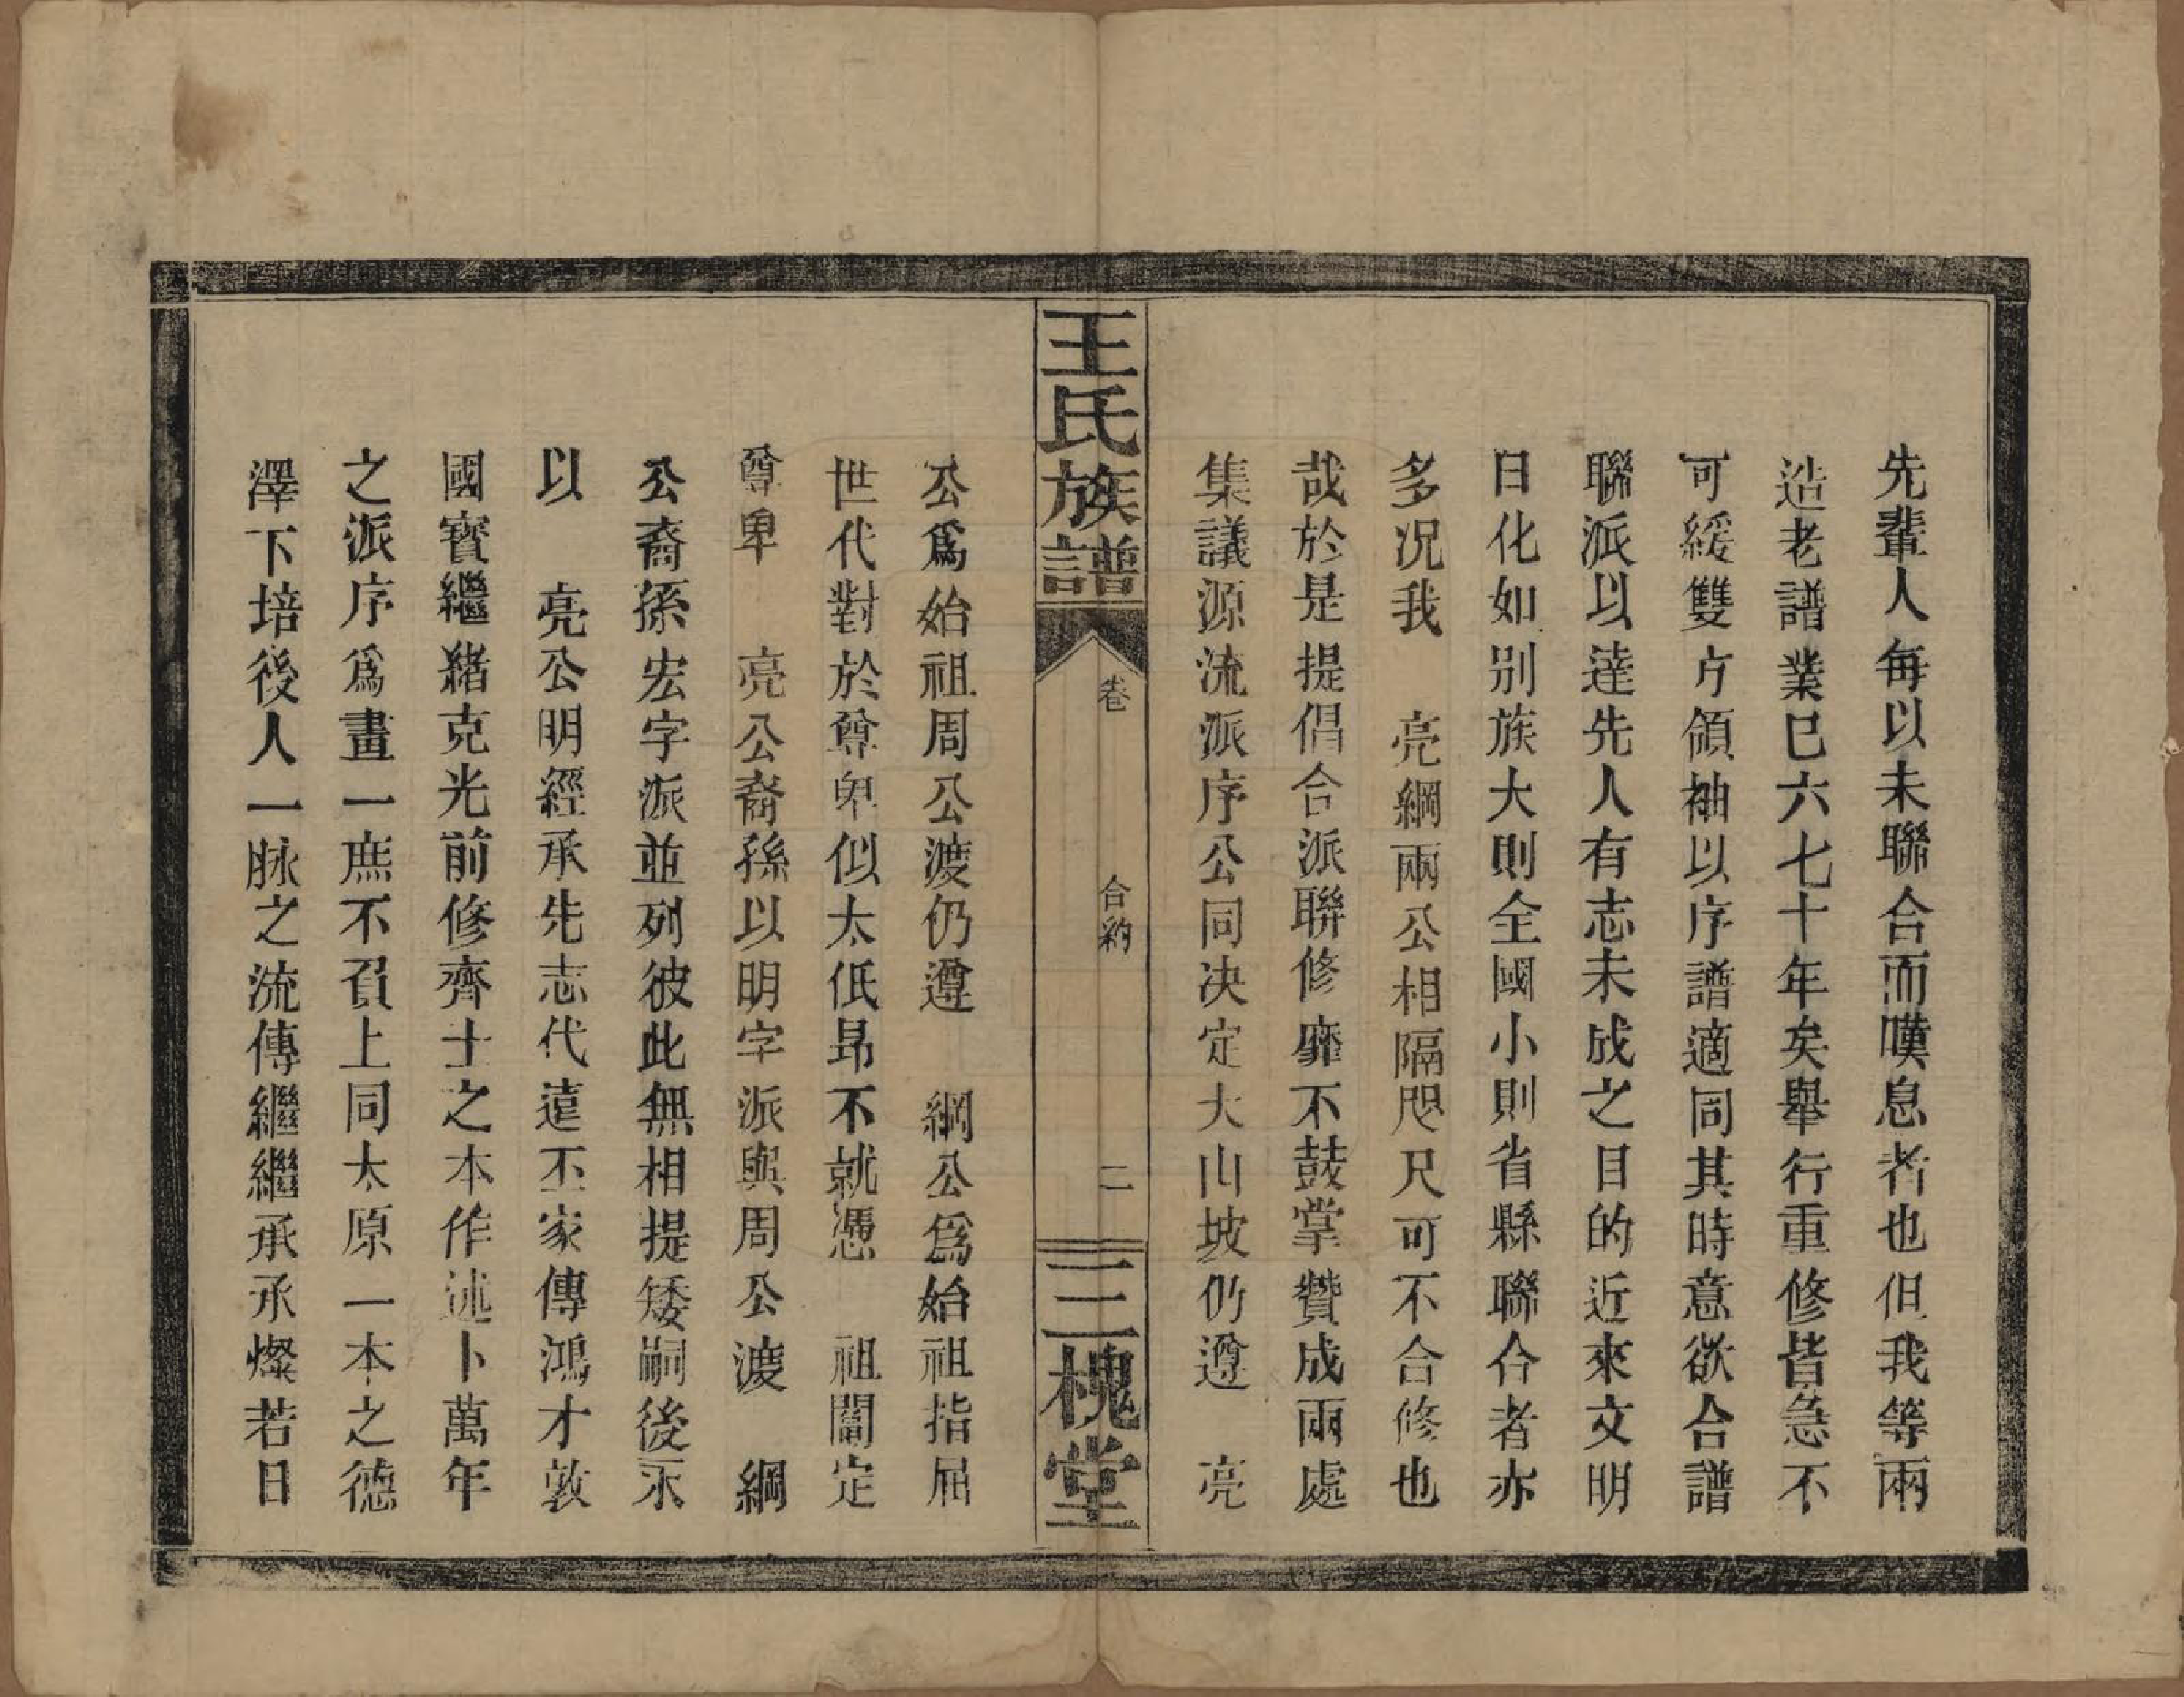 先輩人每以未聯合而嘆息者也但我等兩
造老譜業已六七十年矣舉行重修皆急不
可緩雙方領袖以序譜適同其時意欲合譜
聯派以達先人有志未成之目的近來文明
日化如别族大則全國小則省縣聯合者亦
多況我　亮綱兩公相隔咫尺可不合修也
哉於是提倡合派聯修靡不鼓掌贊成兩處
集議源流派序公同决定大山坡仍遵　亮
王氏族譜
卷　合約　二
三槐堂
公爲始祖周公渡仍遵　綱公爲始祖指屈
世代對於尊卑似太低昻不就憑　祖闇定
尊卑　亮公裔孫以明字派與周公渡　綱
公裔孫宏字派並列彼此無相提矮嗣後永
以　亮公明經承先志代遠丕家傳鴻才敦
國寳繼緒克光前修齊士之本作述卜萬年
之派序爲畫一庶不負上同太原一本之德
澤下培後人一脉之流傳繼繼承承燦若日